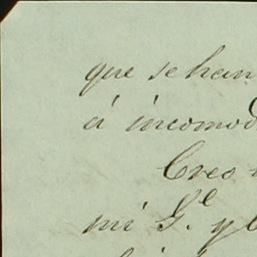 que se han
á incomod
Creo
mi G.e y